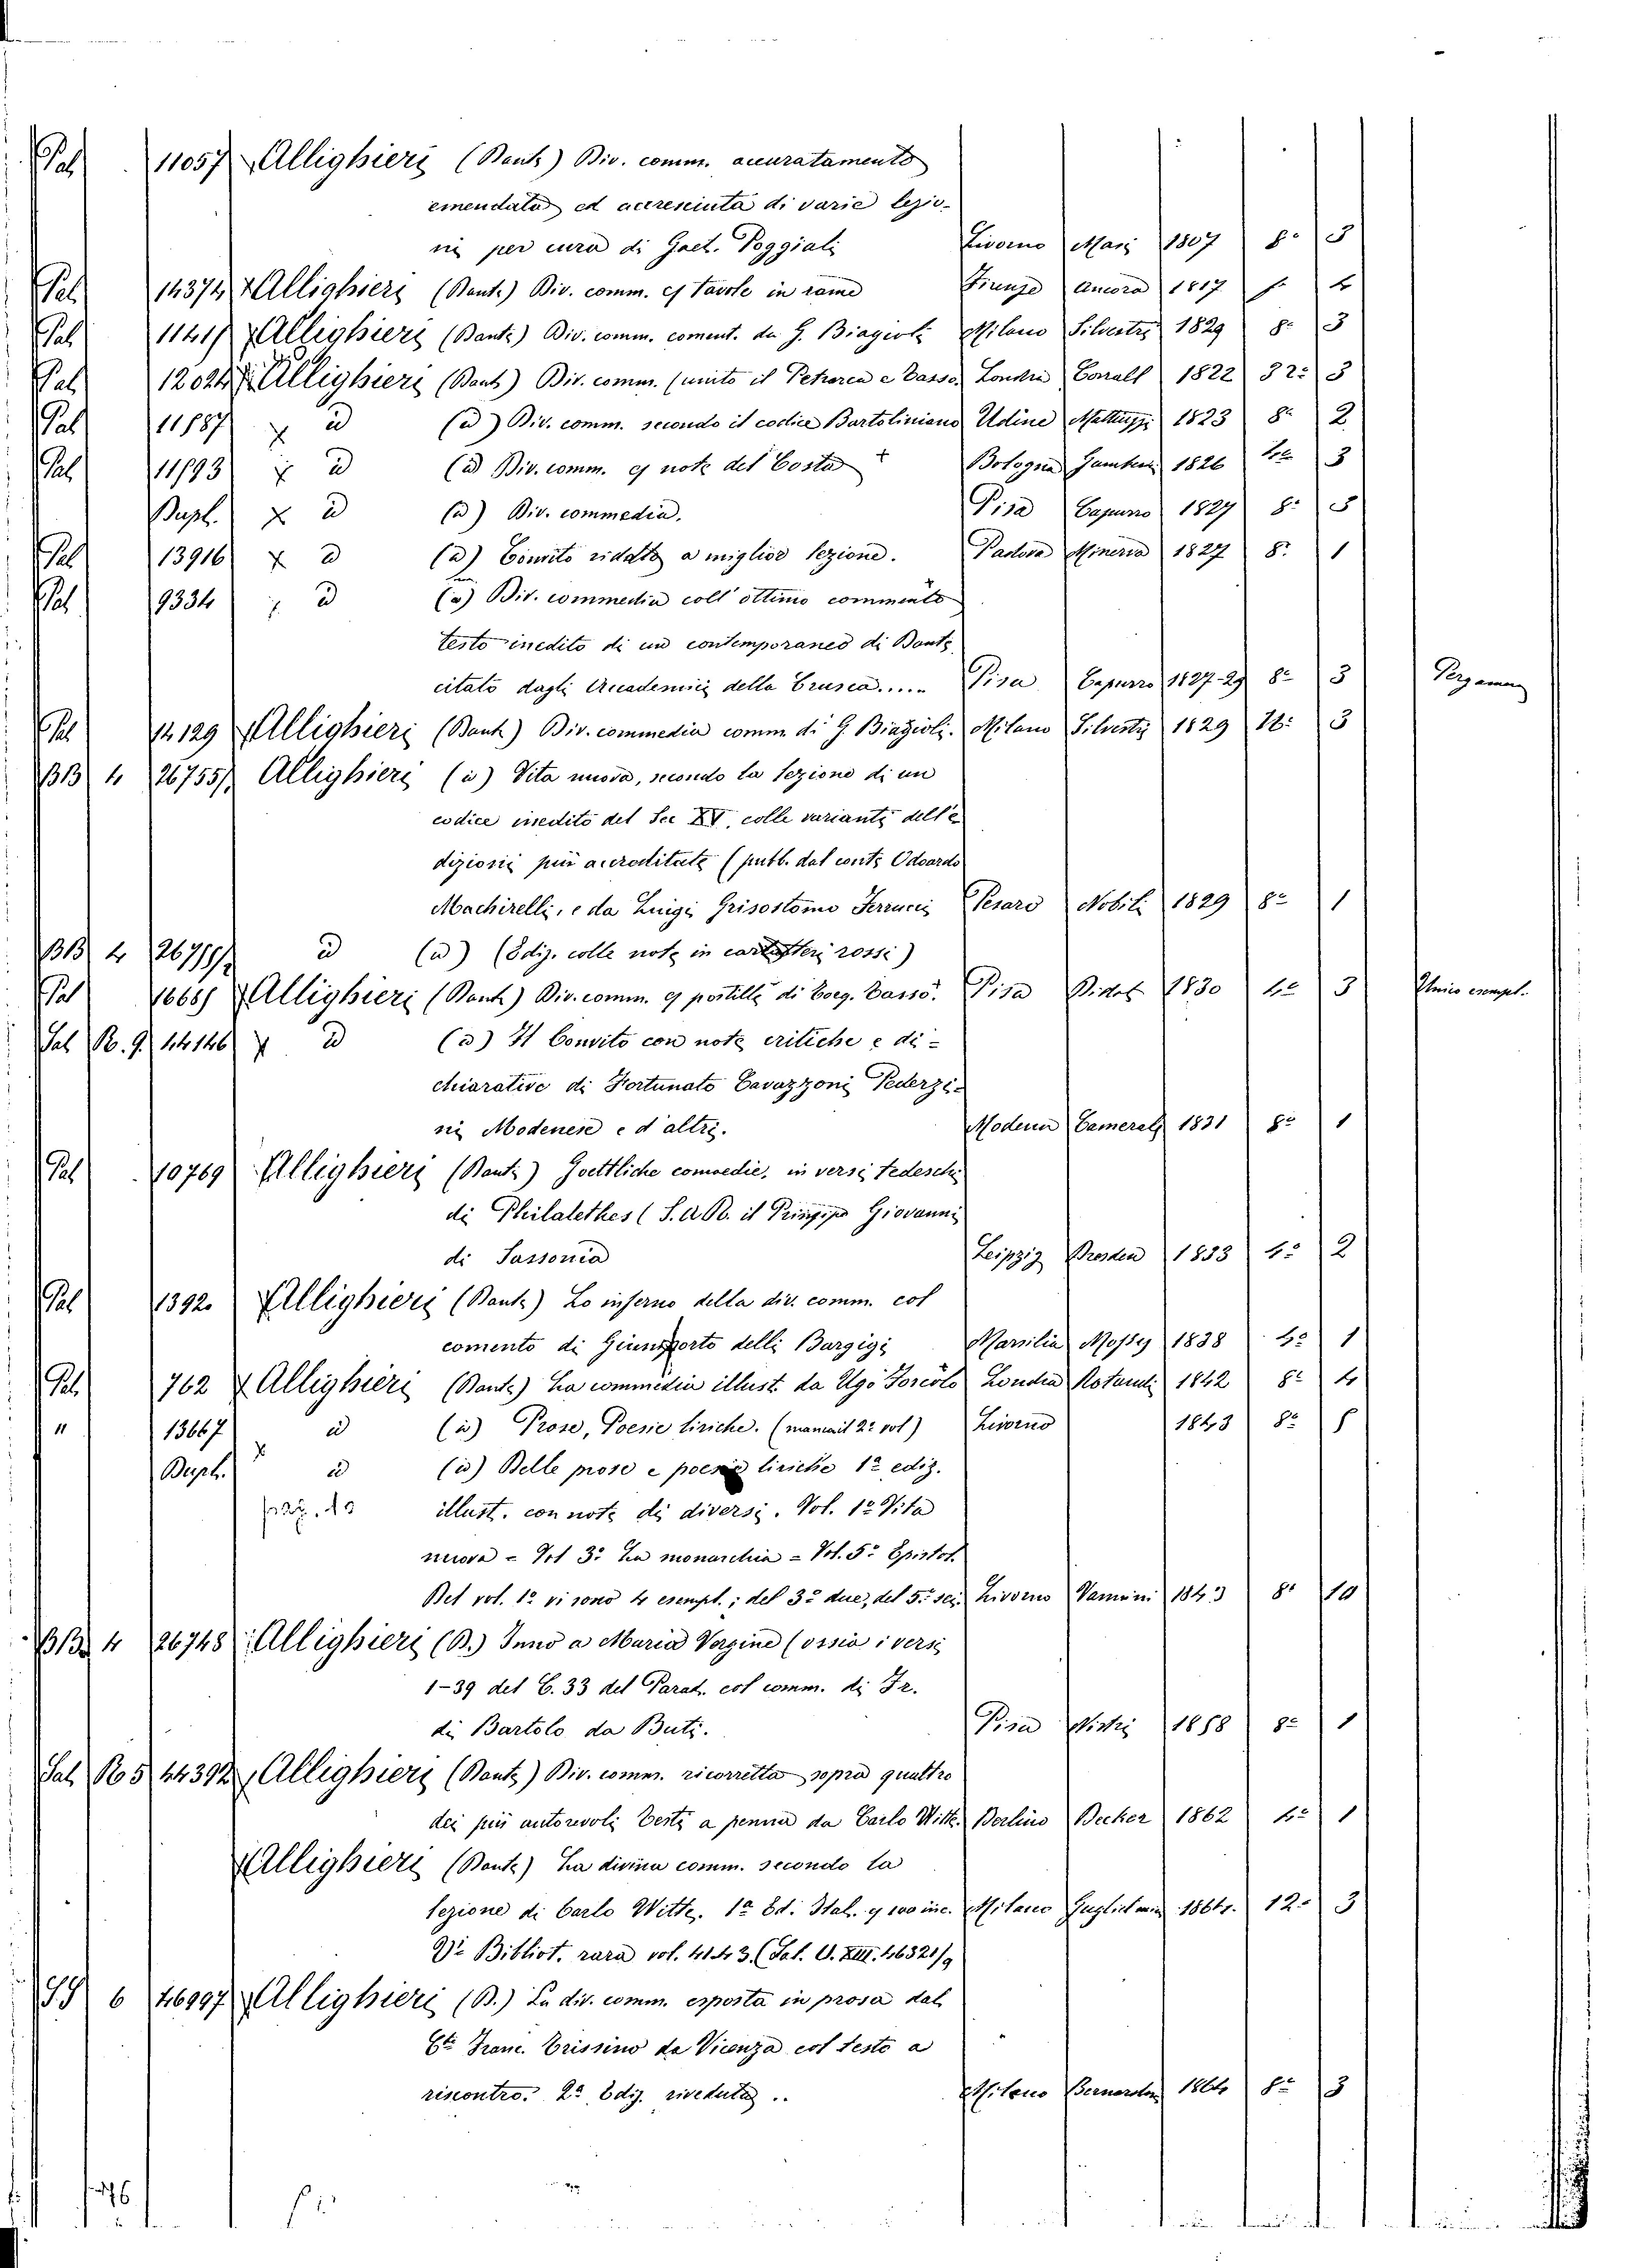 Pal 11057 Allighieri (Dante) Div. comm. accuratamente
emendata ed accresciuta di varie lezio-
ni per cura di Gaet. Poggiali Livorno Masi 1807 8° 3
Pal 14374 Allighieri (Dante) Div. comm. cf tavole in rame Firenze Ancora 1817 f. 4
Pal 11417 Allighieri (Dante) Div. comm. coment. da G. Biagioli Milano Silvestri 1829 8° 3
Pal 12024 Allighieri (Dante) Div. comm. (unito il Petrarca e Tasso) Londra Corrall 1822 32° 3
Pal 11887 x id (id) Div. comm. secondo il codice Bartoliniano Udine Mattiuzzi 1823 8° 2
Pal 11893 x id (id) Div. comm. cf note del Costa + Bologna Gamberini 1826 4° 3
Dupl. x id (id) Div. commedia. Pisa Capurro 1827 8° 3
Pal 13916 x id (id) Convito ridotto a miglior lezione. Padova Minerva 1827 8° 1
Pal 9334 x id (id) Div. commedia coll'ottimo commento
testo inedito di un contemporaneo di Dante
citato dagli Accademici della Crusca..... Pisa Capurro 1827-29 8° 3 Pergamena
Pal 14129 Allighieri (Dante) Div. commedia comm. di G. Biagioli. Milano Silvestri 1829 18° 3
BB 4 26755/ Allighieri (id) Vita nuova, secondo la lezione di un
codice inedito del Sec XV. colle varianti dell'e
dizioni più accreditate (pubb. dal conte Odoardo
Machirelli, e da Luigi Grisostomo Ferrucci Pesaro Nobili 1829 8° 1
BB 4 id (id) (Ediz. colle note in caratteri rossi)
Pal 1668 Allighieri (Dante) Div. comm. cf postille di Torq. Tasso. Pisa Didot 1830 4° 3 Unico esempl.
Sal R. 9. 44146 x id (id) Il Convito con note critiche e di-
chiarative di Fortunato Cavazzoni Pederzi-
ni Modenese e d'altri. Modena Camerale 1831 8° 1
Pal 10769 Allighieri (Dante) Goettliche comoedie, in versi tedeschi
di Philalethes (S.A.R. il Principe Giovanni
di Sassonia Leipzig Dresden 1833 4° 2
Pal 1392. Allighieri (Dante) Lo inferno della div. comm. col
comento di Guiniforto delli Bargigi Marsilia Mossy 1838 4° 1
Pal 762 x Allighieri (Dante) La commedia illust. da Ugo Foscolo Londra Rolandi 1842 8° 4
" 13667 id (id) Prose, Poesie liriche. (manca il 2° vol) Livorno 1843 8°
Dupl. x id (id) Delle prose e poesie liriche 1a ediz.
illust. con note di diversi. Vol. 1° Vita
nuova = Vol 3° La monarchia = Vol. 5° Epistol.
Del vol. 1° vi sono 4 esempl.; del 3° due, del 5° sei. Livorno Vannini 1843 8° 10
BB 4 26748 Allighieri (D.) Inno a Maria Vergine (ossia i versi
1-39 del C. 33 del Parad. col comm. di Fr.
di Bartolo da Buti. Pisa Nistri 1858 8° 1
Sal R 5 44392 Allighieri (Dante) Div. comm. ricorretta sopra quattro
dei più autorevoli testi a penna da Carlo Witte. Berlino Decker 1862 4° 1
Allighieri (Dante) La divina comm. secondo la
lezione di Carlo Witte. 1a Ed. Ital. cf 100 inc. Milano Guglielmini 1864. 12° 3
Di Bibliot. rara vol. 41 43. (Sal. U. XIII. 46321/9
SS 6 46997 Allighieri (D.) La div. comm. esposta in prosa dal
Cte Franc. Trissino da Vicenza col testo a
riscontro. 2a Ediz. riveduta .. Milano Bernardoni 1864 8° 3